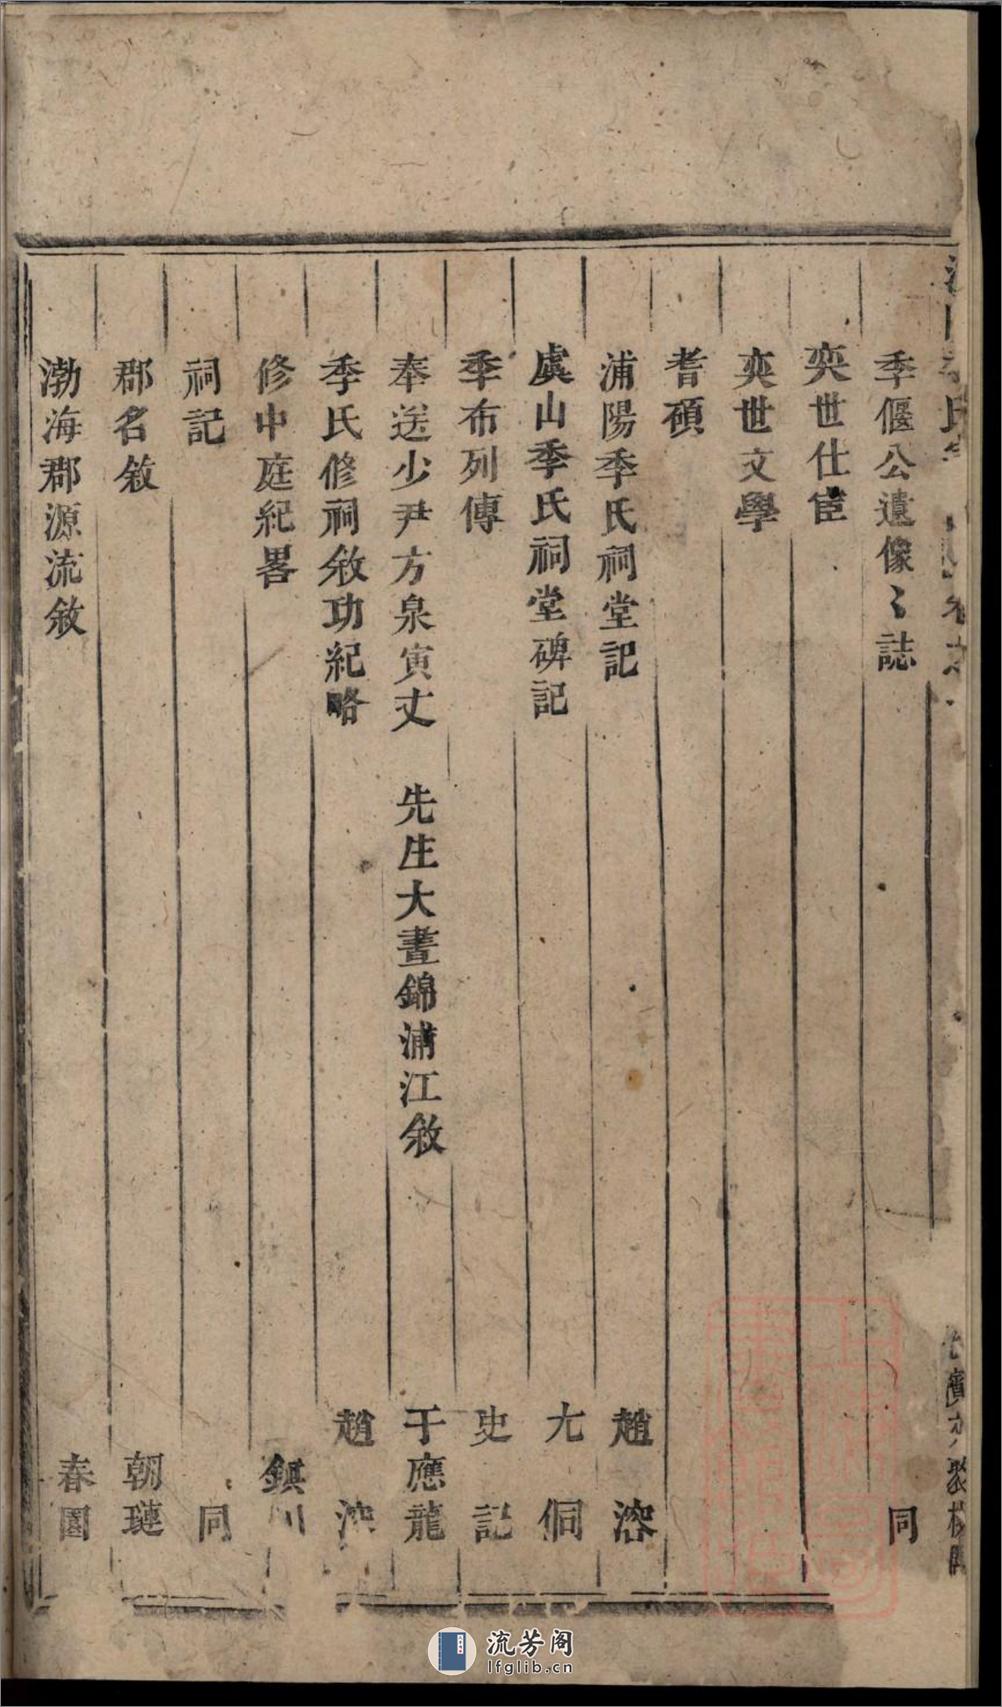 季偃公遺像〻誌　同
奕世仕宦
奕世文學
耆碩
浦陽季氏祠堂記　趙溶
虞山季氏祠堂碑記　尤侗
季布列傳　史記
奉送少尹方泉寅丈　先生大晝錦浦江敘　于應龍
季氏修祠敘功紀略　趙
修中庭紀畧　鎮川
祠記　同
郡名敘　朝璉
渤海郡源流敘　春園
流芳阁
lfglib.cn